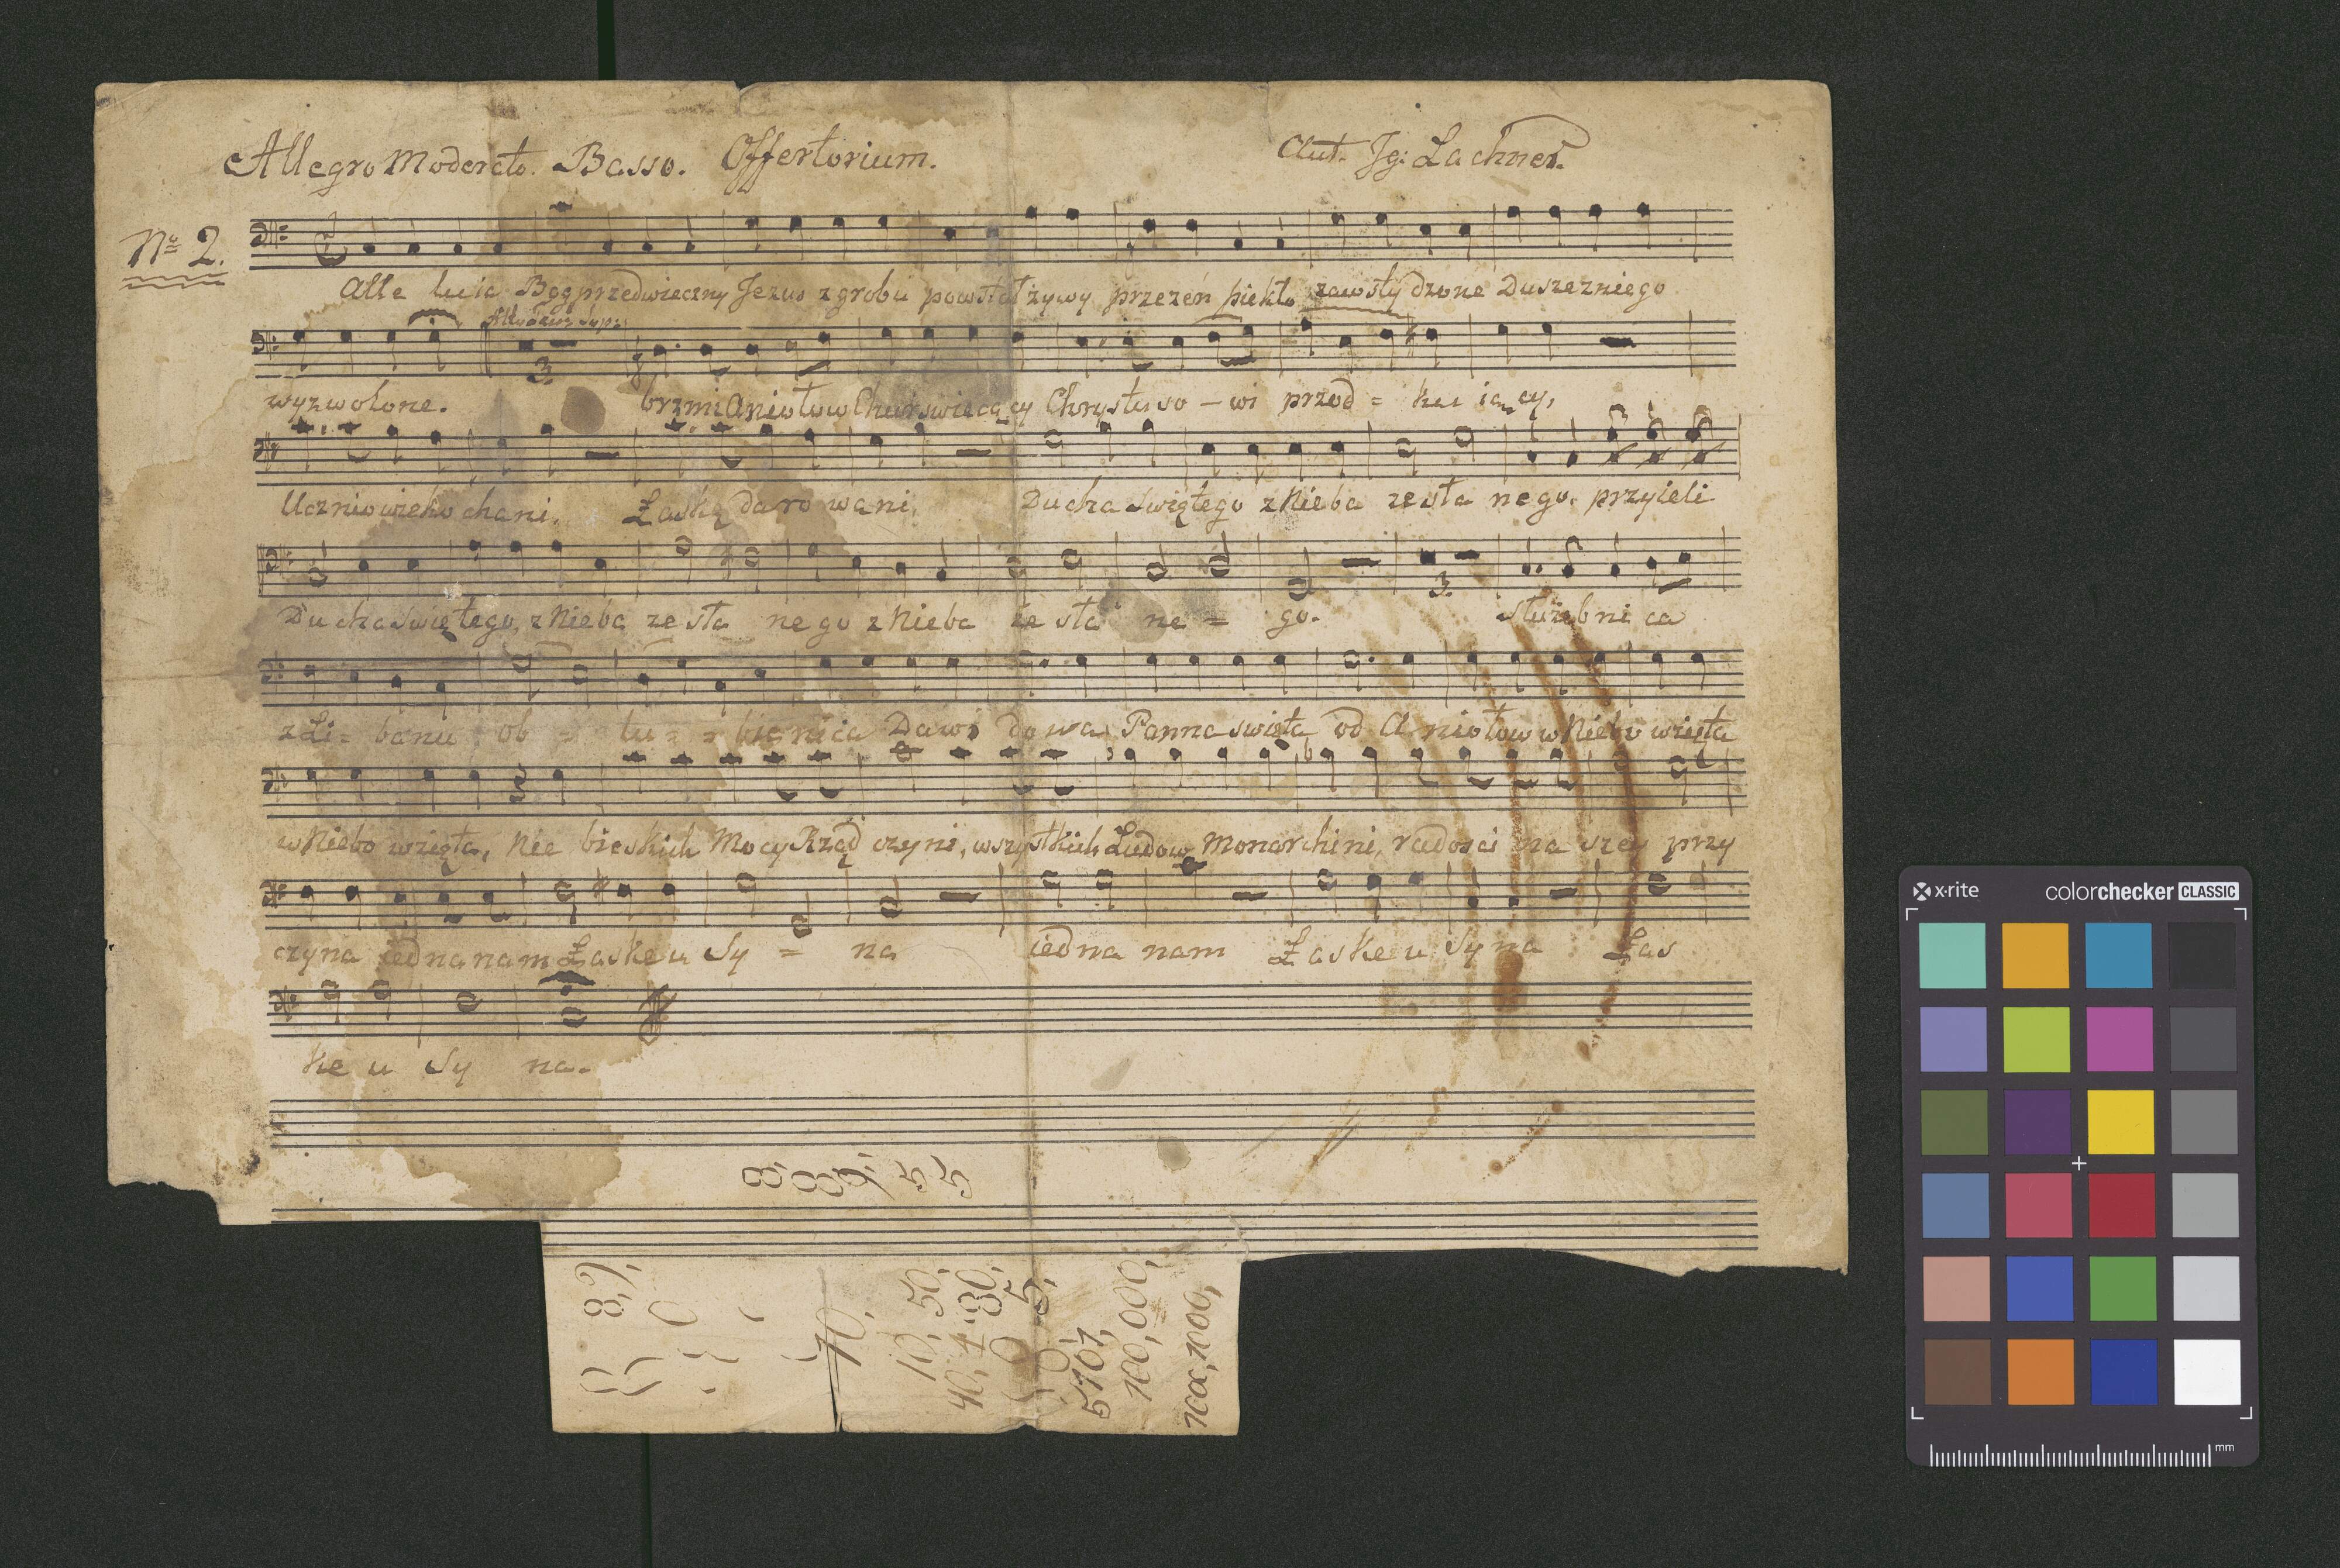 Allegro Moderato. Basso. Offertorium. Aut. Ig: Lachner.
No 2.
Alle luia Bog przedwieczny Jezus z grobu powstał żywy przezeń piekło zawsty dzone Dusze z niego
wyzwolone. brzmi Aniołow Chur swiecący Chrystuso - wi przod = ku ią cy,
Uczniowie ko chani, Łaską daro wani, Ducha Swiętego z Nieba zesła nego. przyieli
Ducha Swiętego, z Nieba ze sła ne go z Nieba ze sła ne = go. Służebni ca
z Li = banu ob = lu = = bienica Dawi do wa Panna swięta od A niołow w Niebo wzięta
w Niebo wzięta, Nie bieskich Mocy Rząd czyni, wszystkich Ludow Monarchini, radosci na szey przy
czyna iedna nam Łaske u Sy = na iedna nam Łaske u Syna Łas
ke u Sy na.
8,
55
89,
0
70,
10, 50,
40, 4 :80,
5,
5101,
100,000,
x-rite colorchecker CLASSIC
mm